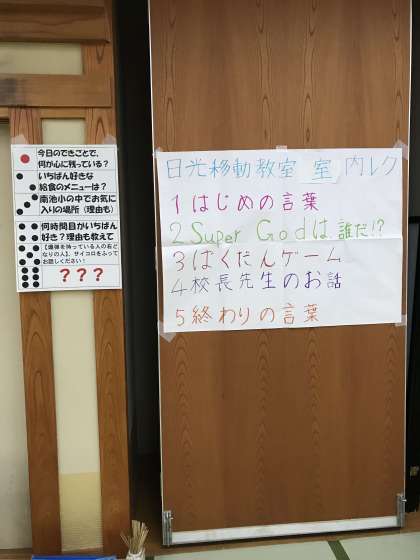 今日のできごとで、
何が心に残っている？
いちばん好きな
給食のメニューは？
南池小の中でお気に
入りの場所（理由も）
何時間目がいちばん
好き？理由も教えて
【爆弾を持っている人の右と
なりの人】、サイコロをふって
お話しください！
？？？
日光移動教室 室内レク
1 はじめの言葉
2 Super Godは、誰だ!?
3 ばくだんゲーム
4 校長先生のお話
5 終わりの言葉